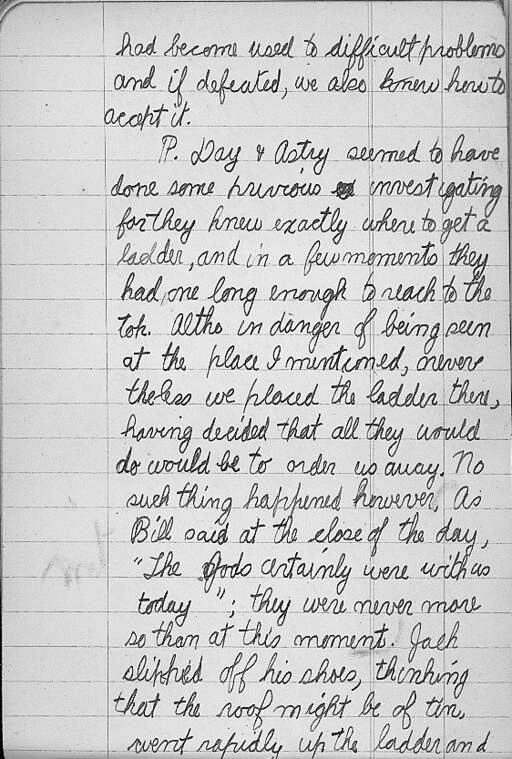 had become used to difficult problems
and if defeated, we also knew how to
accept it.
P. Day & Astry seemed to have
done some previous investigating
for they knew exactly where to get a
ladder, and in a few moments they
had, one long enough to reach to the
top. Altho in danger of being seen
at the place I mentioned, never
theless we placed the ladder there,
having decided that all they would
do would be to order us away. No
such thing happened however. As
Bill said at the close of the day,
"The Gods certainly were with us
today"; they were never more
so than at this moment. Jack
slipped off his shoes, thinking
that the roof might be of tin,
went rapidly up the ladder and